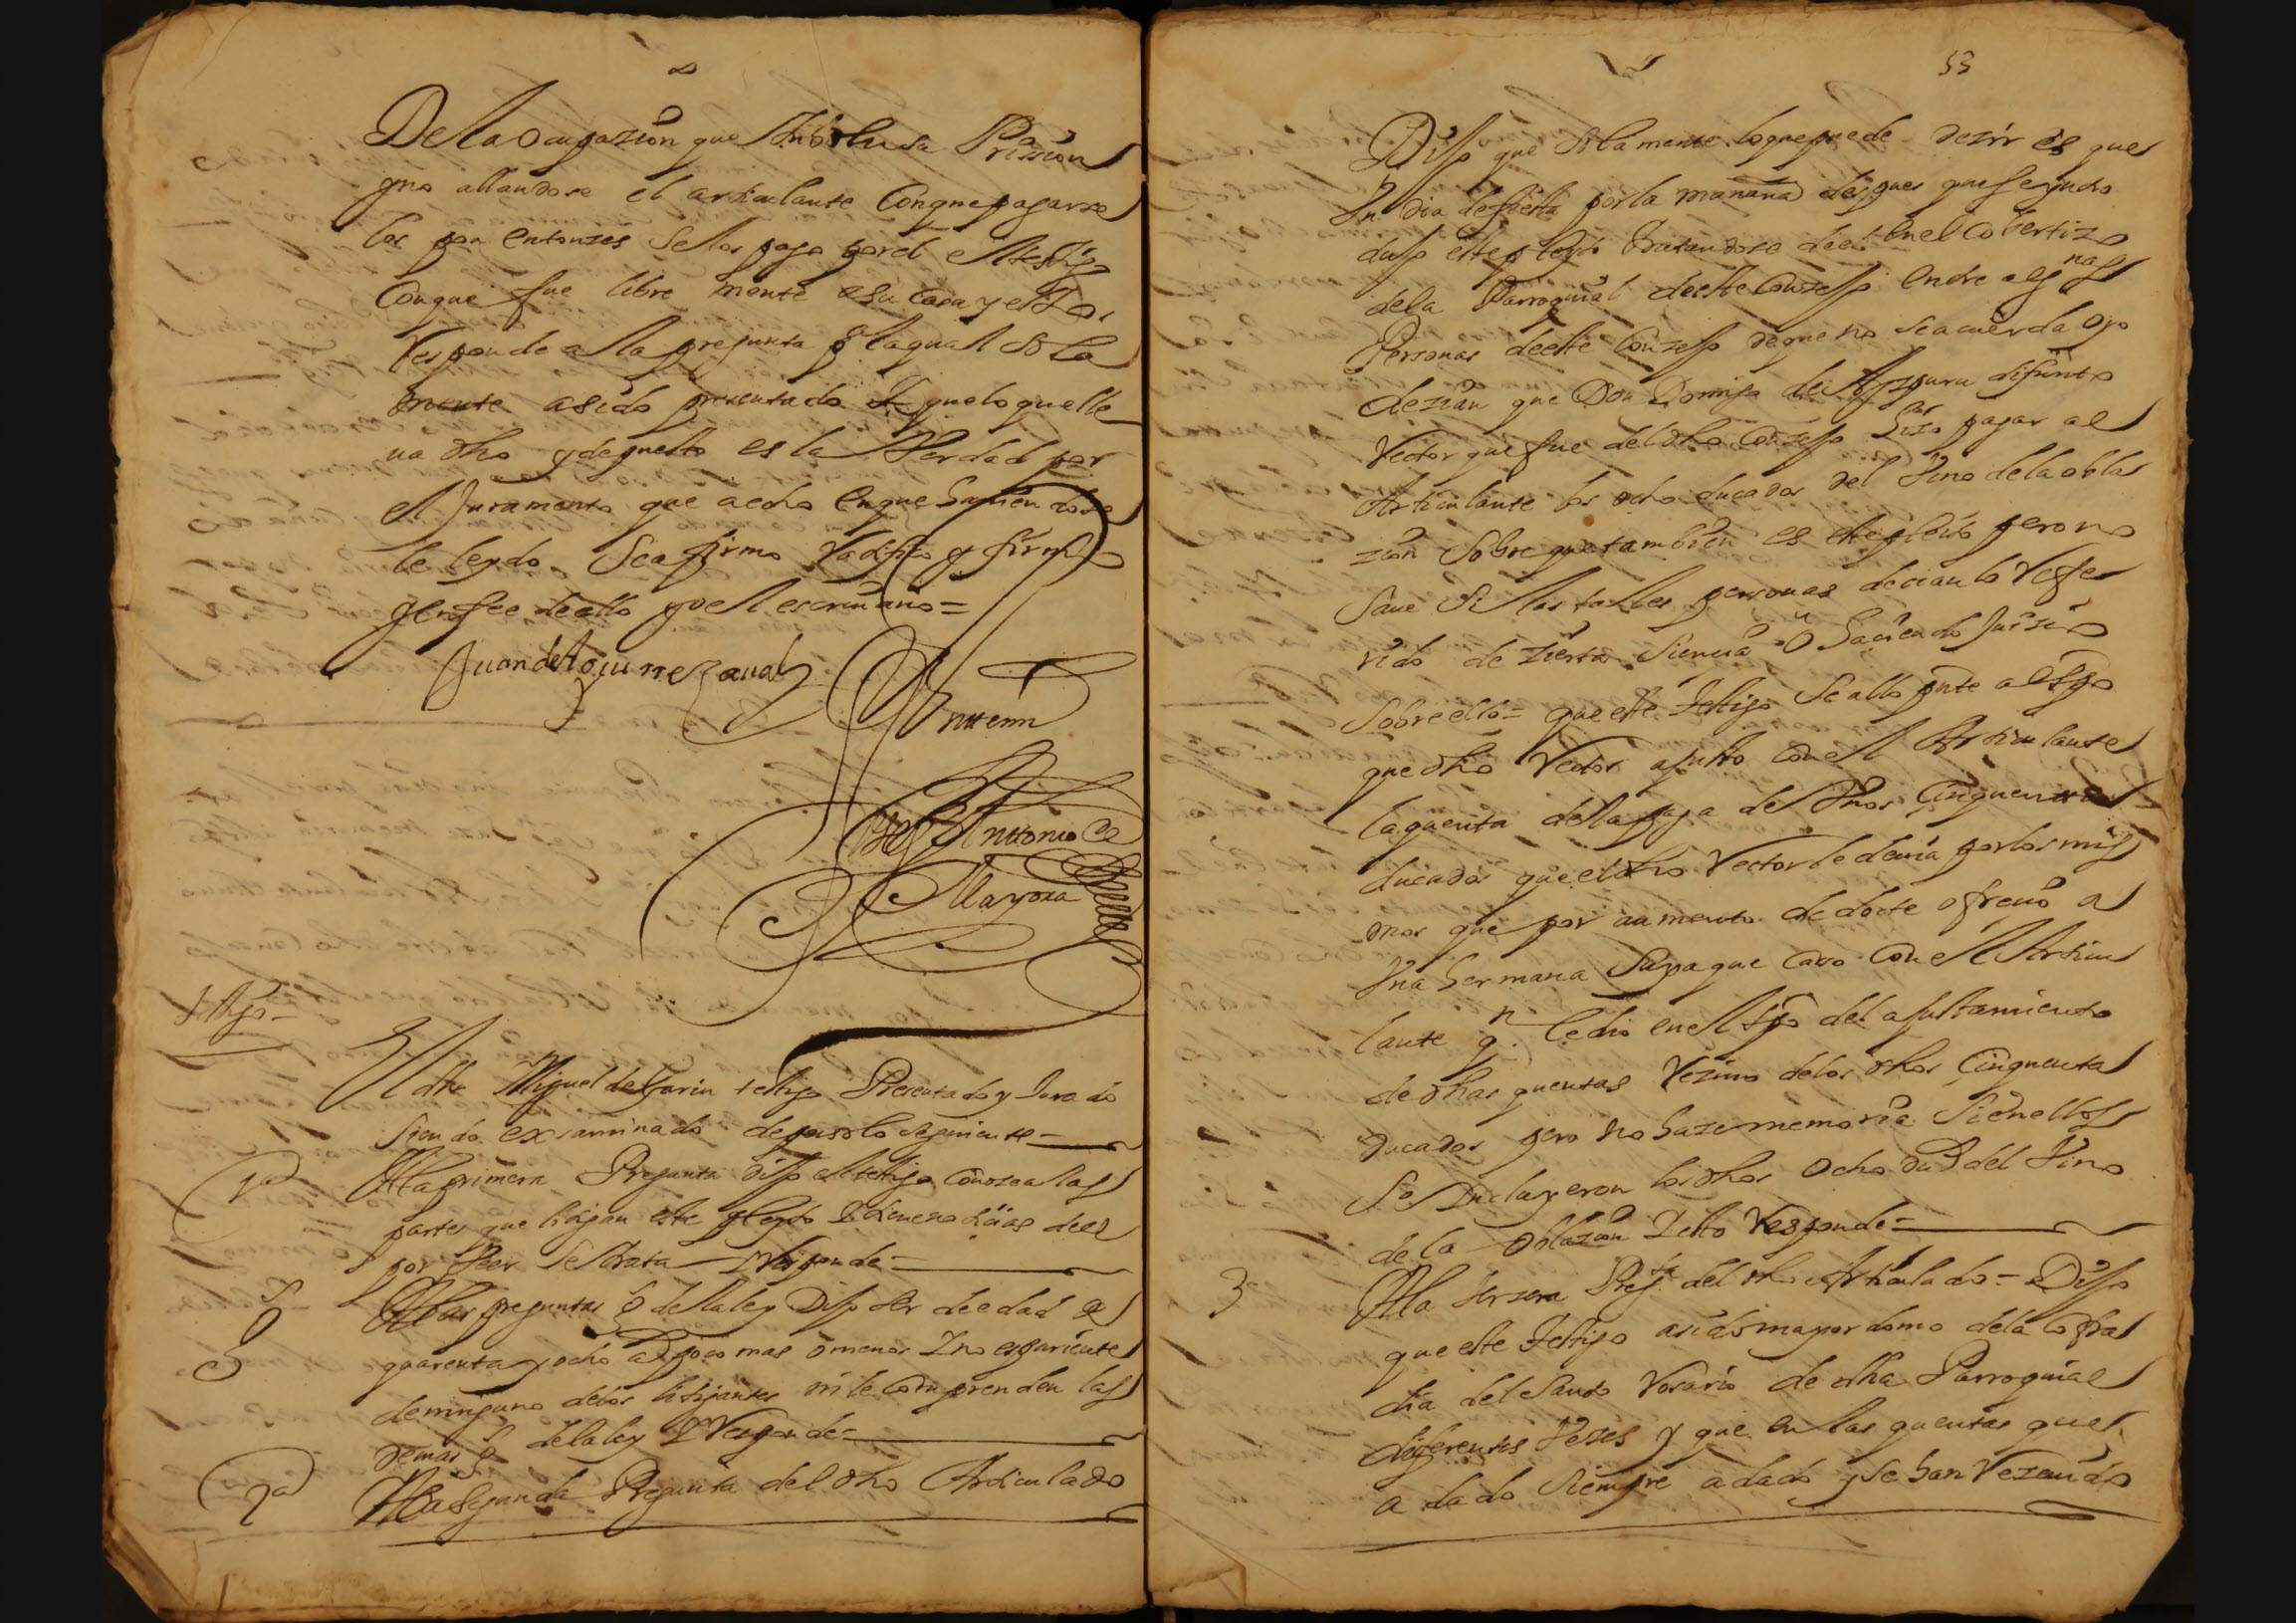 De la ocupazion que Inboluia Prission
y no allandose el articulante Con que pagarse
los por entonzes Se los pago por el este testigo
Con que fue libre mente a su casa y esto
Responde a la pregunta p.ª la qual sola
mente a sido presentado Y que lo que lle
ua dho y depuesto es la Verdad por
el Juramento que a echo en que hauiendose
le leydo Se afirmo Ratifico y firmo
y en fee de ello yo el escriuano =
Juan de Aguirrezaual
Antemi
Antonio de
Mayora
Testigo
El dho Miguel de Garin testigo Presentado y Jurado
siendo examinado depuso lo seguiente
1ª
A la primera Pregunta dijo el testigo Conoze a las
partes que litigan este pleyto Y tiene notizias de el
por Ver Se trata Y Responde =
A las preguntas g de la ley Dijo Ser de edad de
quarenta y ocho a.s poco mas o menos Y no es pariente
de ninguno de los litigantes ni le Comprenden las
demas g de la ley Y Responde =
2ª
A la Segunda Pregunta del dho Articulado
53
Dijo que Solamente lo que puede dezir es que
Vn dia de fiesta por la mañana despues que se yntro
dujo este pleyto tratandose de el en el Cobertizo
de la Parroquial de este Conzejo entre alg.nas
Personas de este Conzejo de que no se acuerda oyo
dezian que Don Domingo de Aizpuru difunto
Rector que fue del dho Conzejo hizo pagar al
Articulante los ocho ducados del Vino de la obla
zion Sobre que tambien es este pleito pero no
Saue Si las tales personas decian lo Refe
rido de zierta Siencia o haciendo Juizio
Sobre ello = que este testigo Se allo pnte al tpo
que dho Rector ajusto con el Articulante
la quenta de la paga de Vnos Cinquenta
ducados que el dho Rector le deuia por los mis
mos que por aumento de docte ofrecio a
Vna hermana Suya que caso con el Articu
lante q.n le dio en el tpo del ajustamiento
de dhas quentas Reziuo de los dhos Cinquenta
Ducados pero no haze memoria Si en ellos
Se Incluyeron los dhos ocho du.s del Vino
de la oblazion Y esto Responde =
3
A la terzera Preg.ta del dho Articulado = Dijo
que este testigo a sido mayordomo de la Cofra
dia del Santo Rosario de dha Parroquial
diferentes Vezes y que en las quentas que
a dado Siempre a dado y Se han Reziuido